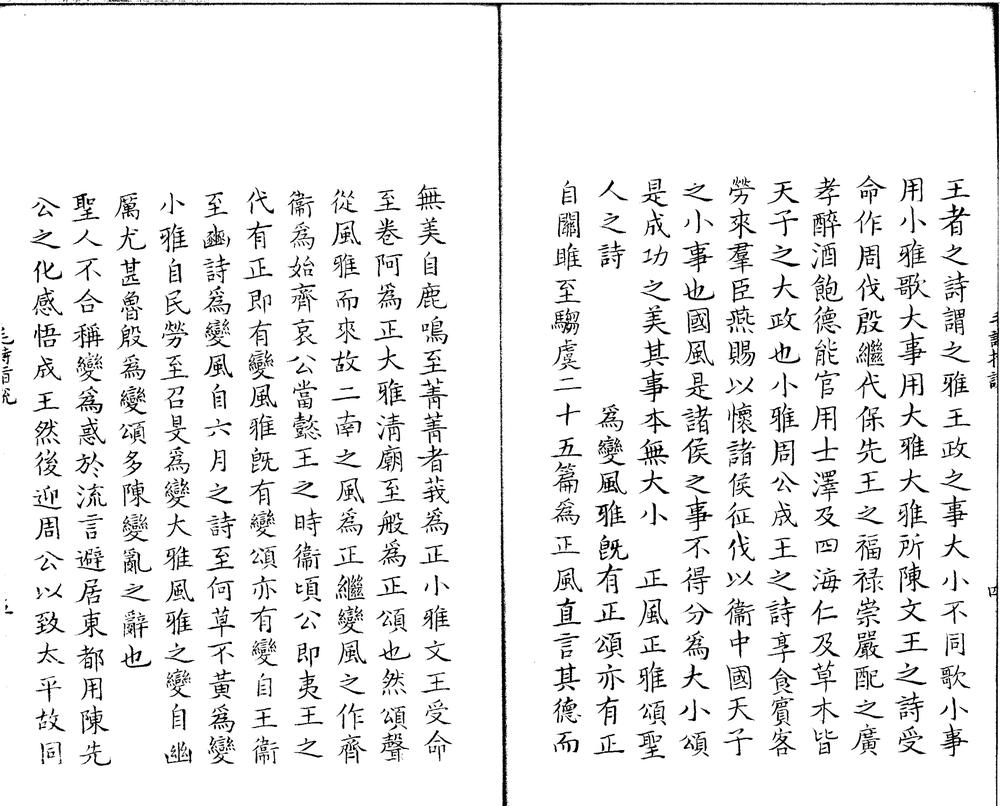 王者之詩謂之雅王政之事大小不同歌小事
用小雅歌大事用大雅大雅所陳文王之詩受
命作周伐殷繼代保先王之福禄崇嚴配之廣
孝醉酒飽德能官用士澤及四海仁及草木皆
天子之大政也小雅周公成王之詩享食賓客
勞來羣臣燕賜以懷諸侯征伐以衞中國天子
之小事也國風是諸侯之事不得分爲大小頌
是成功之美其事本無大小　正風正雅頌聖
人之詩　　　爲變風雅旣有正頌亦有正
自關雎至騶虞二十五篇爲正風直言其德而
無美自鹿鳴至菁菁者莪爲正小雅文王受命
至卷阿爲正大雅淸廟至般爲正頌也然頌聲
從風雅而來故二南之風爲正繼變風之作齊
衞爲始齊哀公當懿王之時衞頃公即夷王之
代有正即有變風雅旣有變頌亦有變自王衞
至豳詩爲變風自六月之詩至何草不黃爲變
小雅自民勞至召旻爲變大雅風雅之變自幽
厲尤甚魯殷爲變頌多陳變亂之辭也
聖人不合稱變爲惑於流言避居東都用陳先
公之化感悟成王然後迎周公以致太平故同
毛詩指說